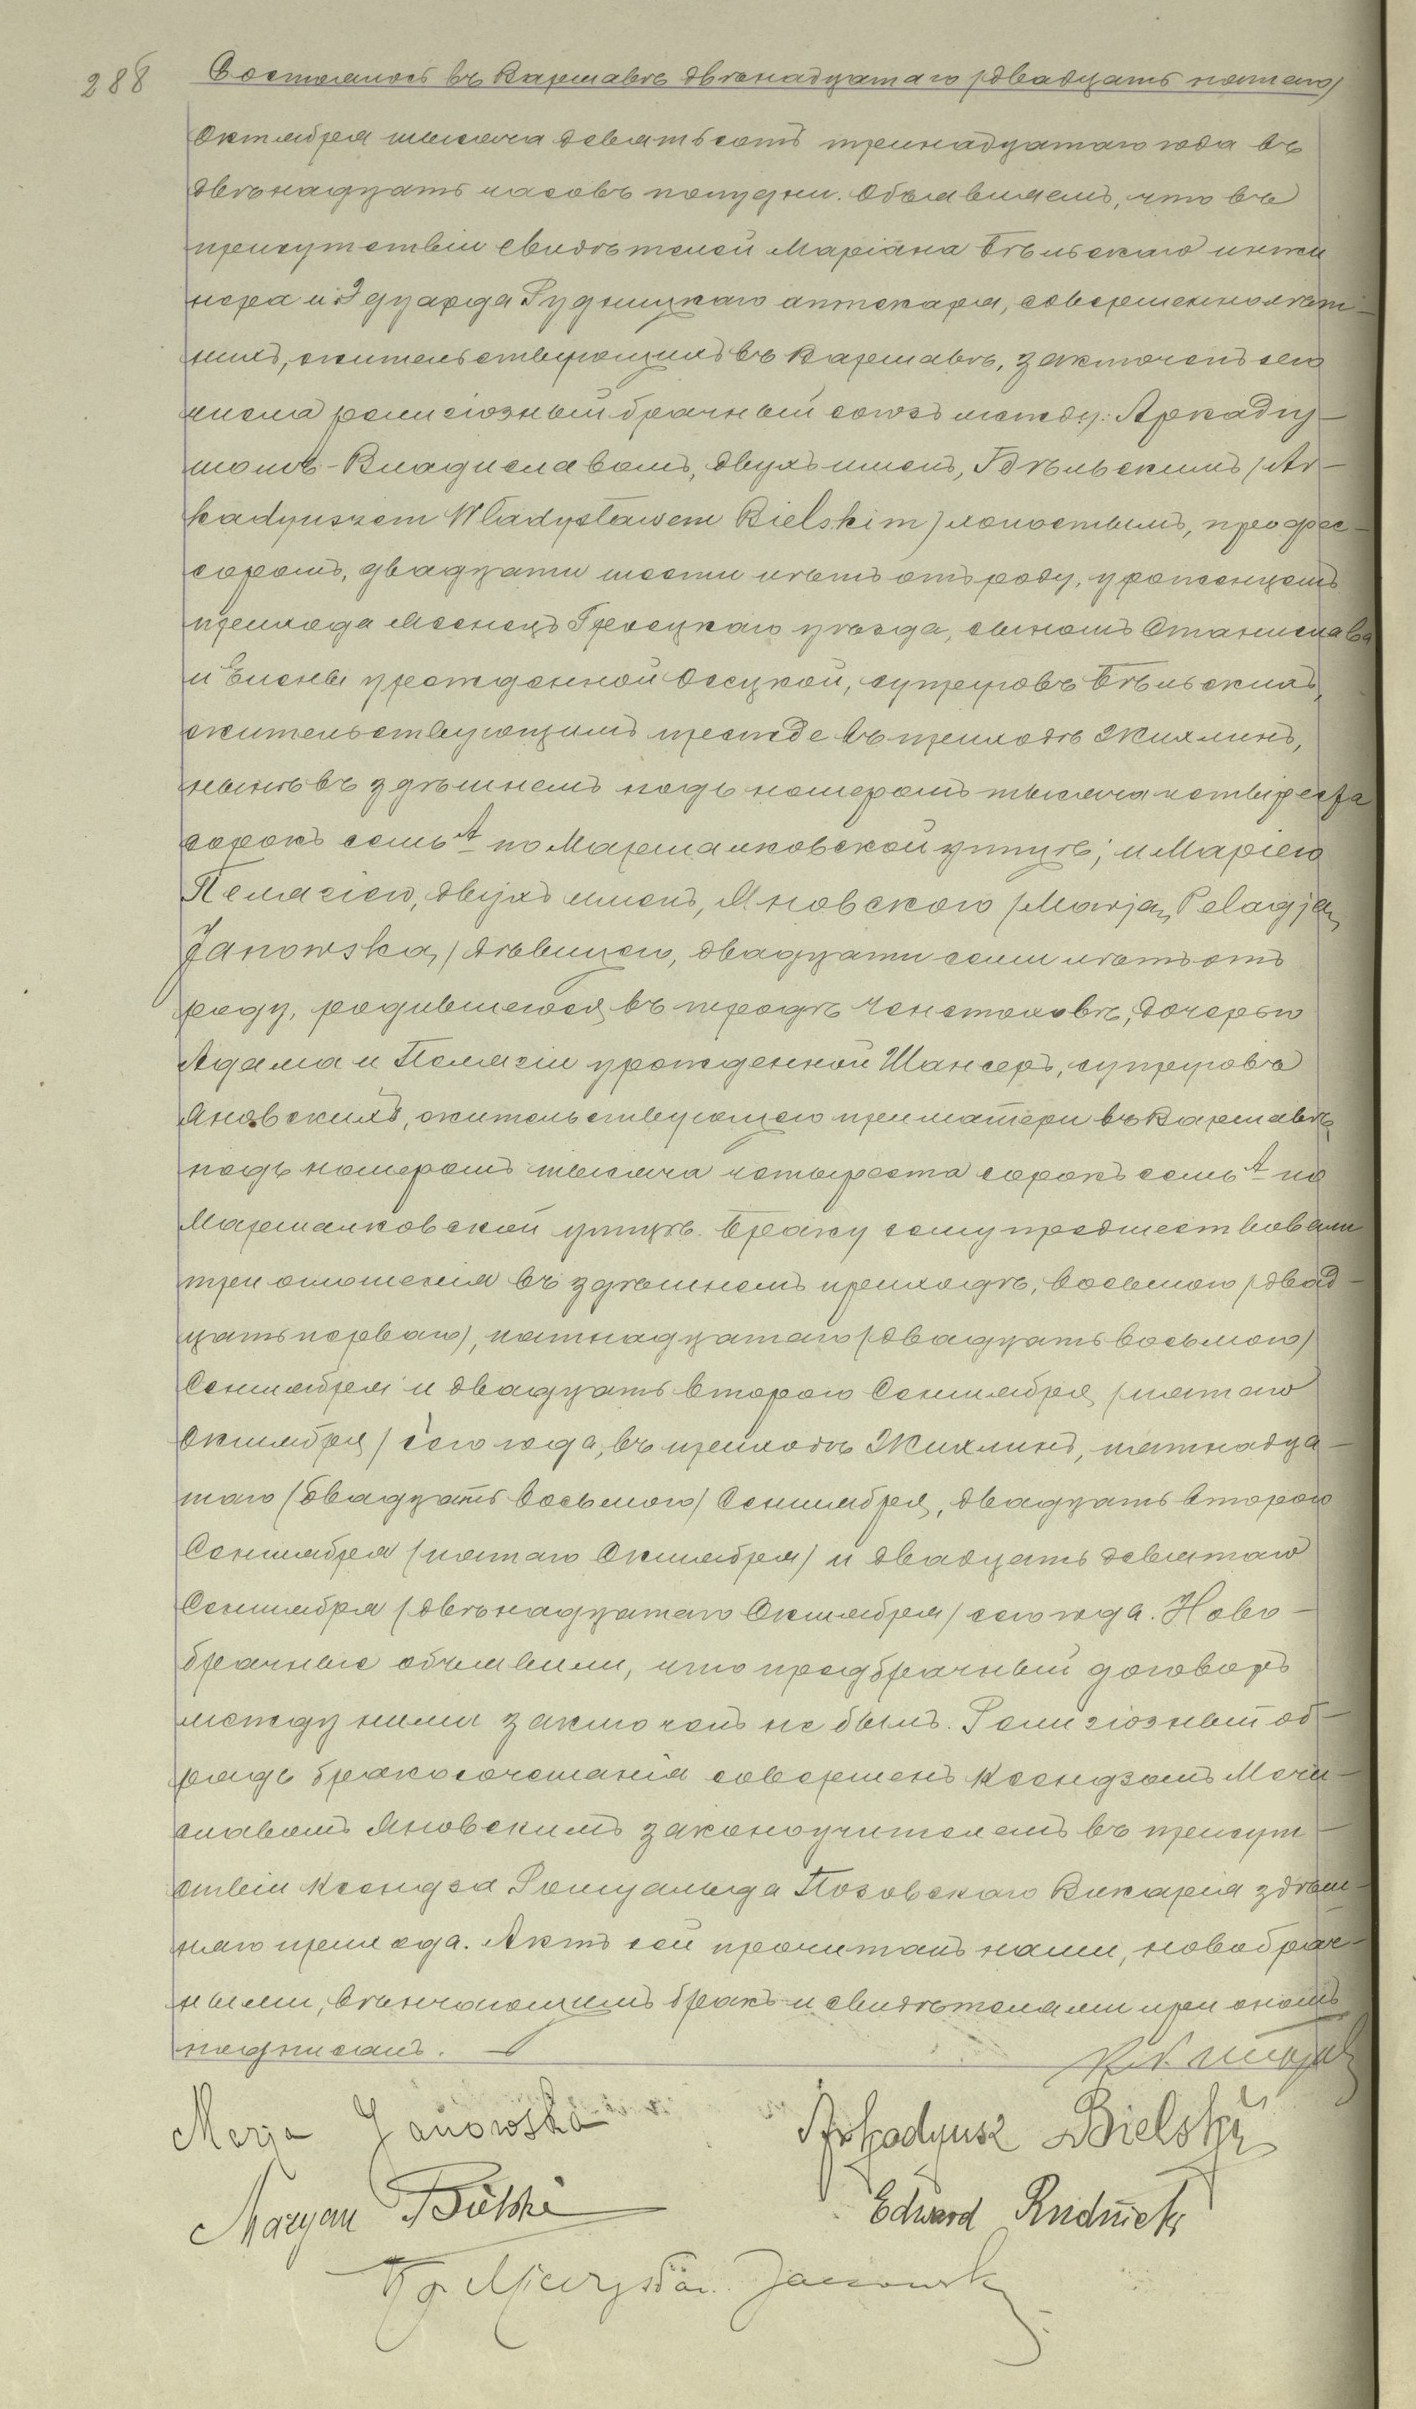 288 Состоялось въ Варшавѣ двѣнадцатаго /двадцать пятаго/
Октября тысяча девятьсотъ тринадцатаго года въ
двѣнадцать часовъ полудни. Объявляемъ, что въ
присутствіи свидѣтелей Маріана Бѣльскаго инжи
нера и Эдуарда Рудницкаго аптекаря, совершеннолѣт-
нихъ, жительствующихъ въ Варшавѣ, заключенъ сего
числа религіозный брачный союзъ между: Аркадіу-
шомъ-Владиславомъ, двухъ именъ, Бѣльскимъ /Ar-
kadyuszem Władysławem Bielskim/ холостымъ, профес-
соромъ, двадцати шести лѣтъ отъ роду, уроженцемъ
прихода Ясенецъ Гроецкаго уѣзда, сыномъ Станислава
и Елены урожденной Оссуцкой, супруговъ Бѣльскихъ,
жительствующимъ прежде въ приходѣ Жихлинъ,
нынѣ въ здѣшнемъ подъ номеромъ тысяча четыреста
сорокъ семь А по Маршалковской улицѣ; и Маріею
Пелагіею, двухъ именъ, Яновскою /Marją Pelagją
Janowską/ дѣвицею, двадцати семи лѣтъ отъ
роду, родившеюся въ городѣ Ченстоховѣ, дочерью
Адама и Пелагіи урожденной Шансеръ, супруговъ
Яновскихъ, жительствующею при матери въ Варшавѣ
подъ номеромъ тысяча четыреста сорокъ семь А по
Маршалковской улицѣ. Браку сему предшествовали
три оглашенія въ здѣшнемъ приходѣ, восьмого /двад-
цать перваго/, пятнадцатаго /двадцать восьмого/
Сентября и двадцать второго Сентября /пятаго
Октября/ сего года, въ приходѣ Жихлинъ, пятнадца-
таго /двадцать восьмого/ Сентября, двадцать второго
Сентября /пятаго Октября/ и двадцать девятаго
Сентября /двѣнадцатаго Октября/ сего года. Ново-
брачные объявили, что предбрачный договоръ
между ними заключенъ не былъ. Религіозный об-
рядъ бракосочетанія совершенъ Ксендзомъ Мечи-
славомъ Яновскимъ законоучителемъ въ присут-
ствіи Ксендза Ромуальда Позовскаго Викарія здѣш-
няго прихода. Актъ сей прочитанъ нами, новобрач-
ными, вѣнчающимъ бракъ и свидѣтелями при ономъ
подписанъ.
Marja Janowska Arkadyusz Bielski
Maryan Bielski Edward Rudnicki
Ks. Mieczysław Janowski